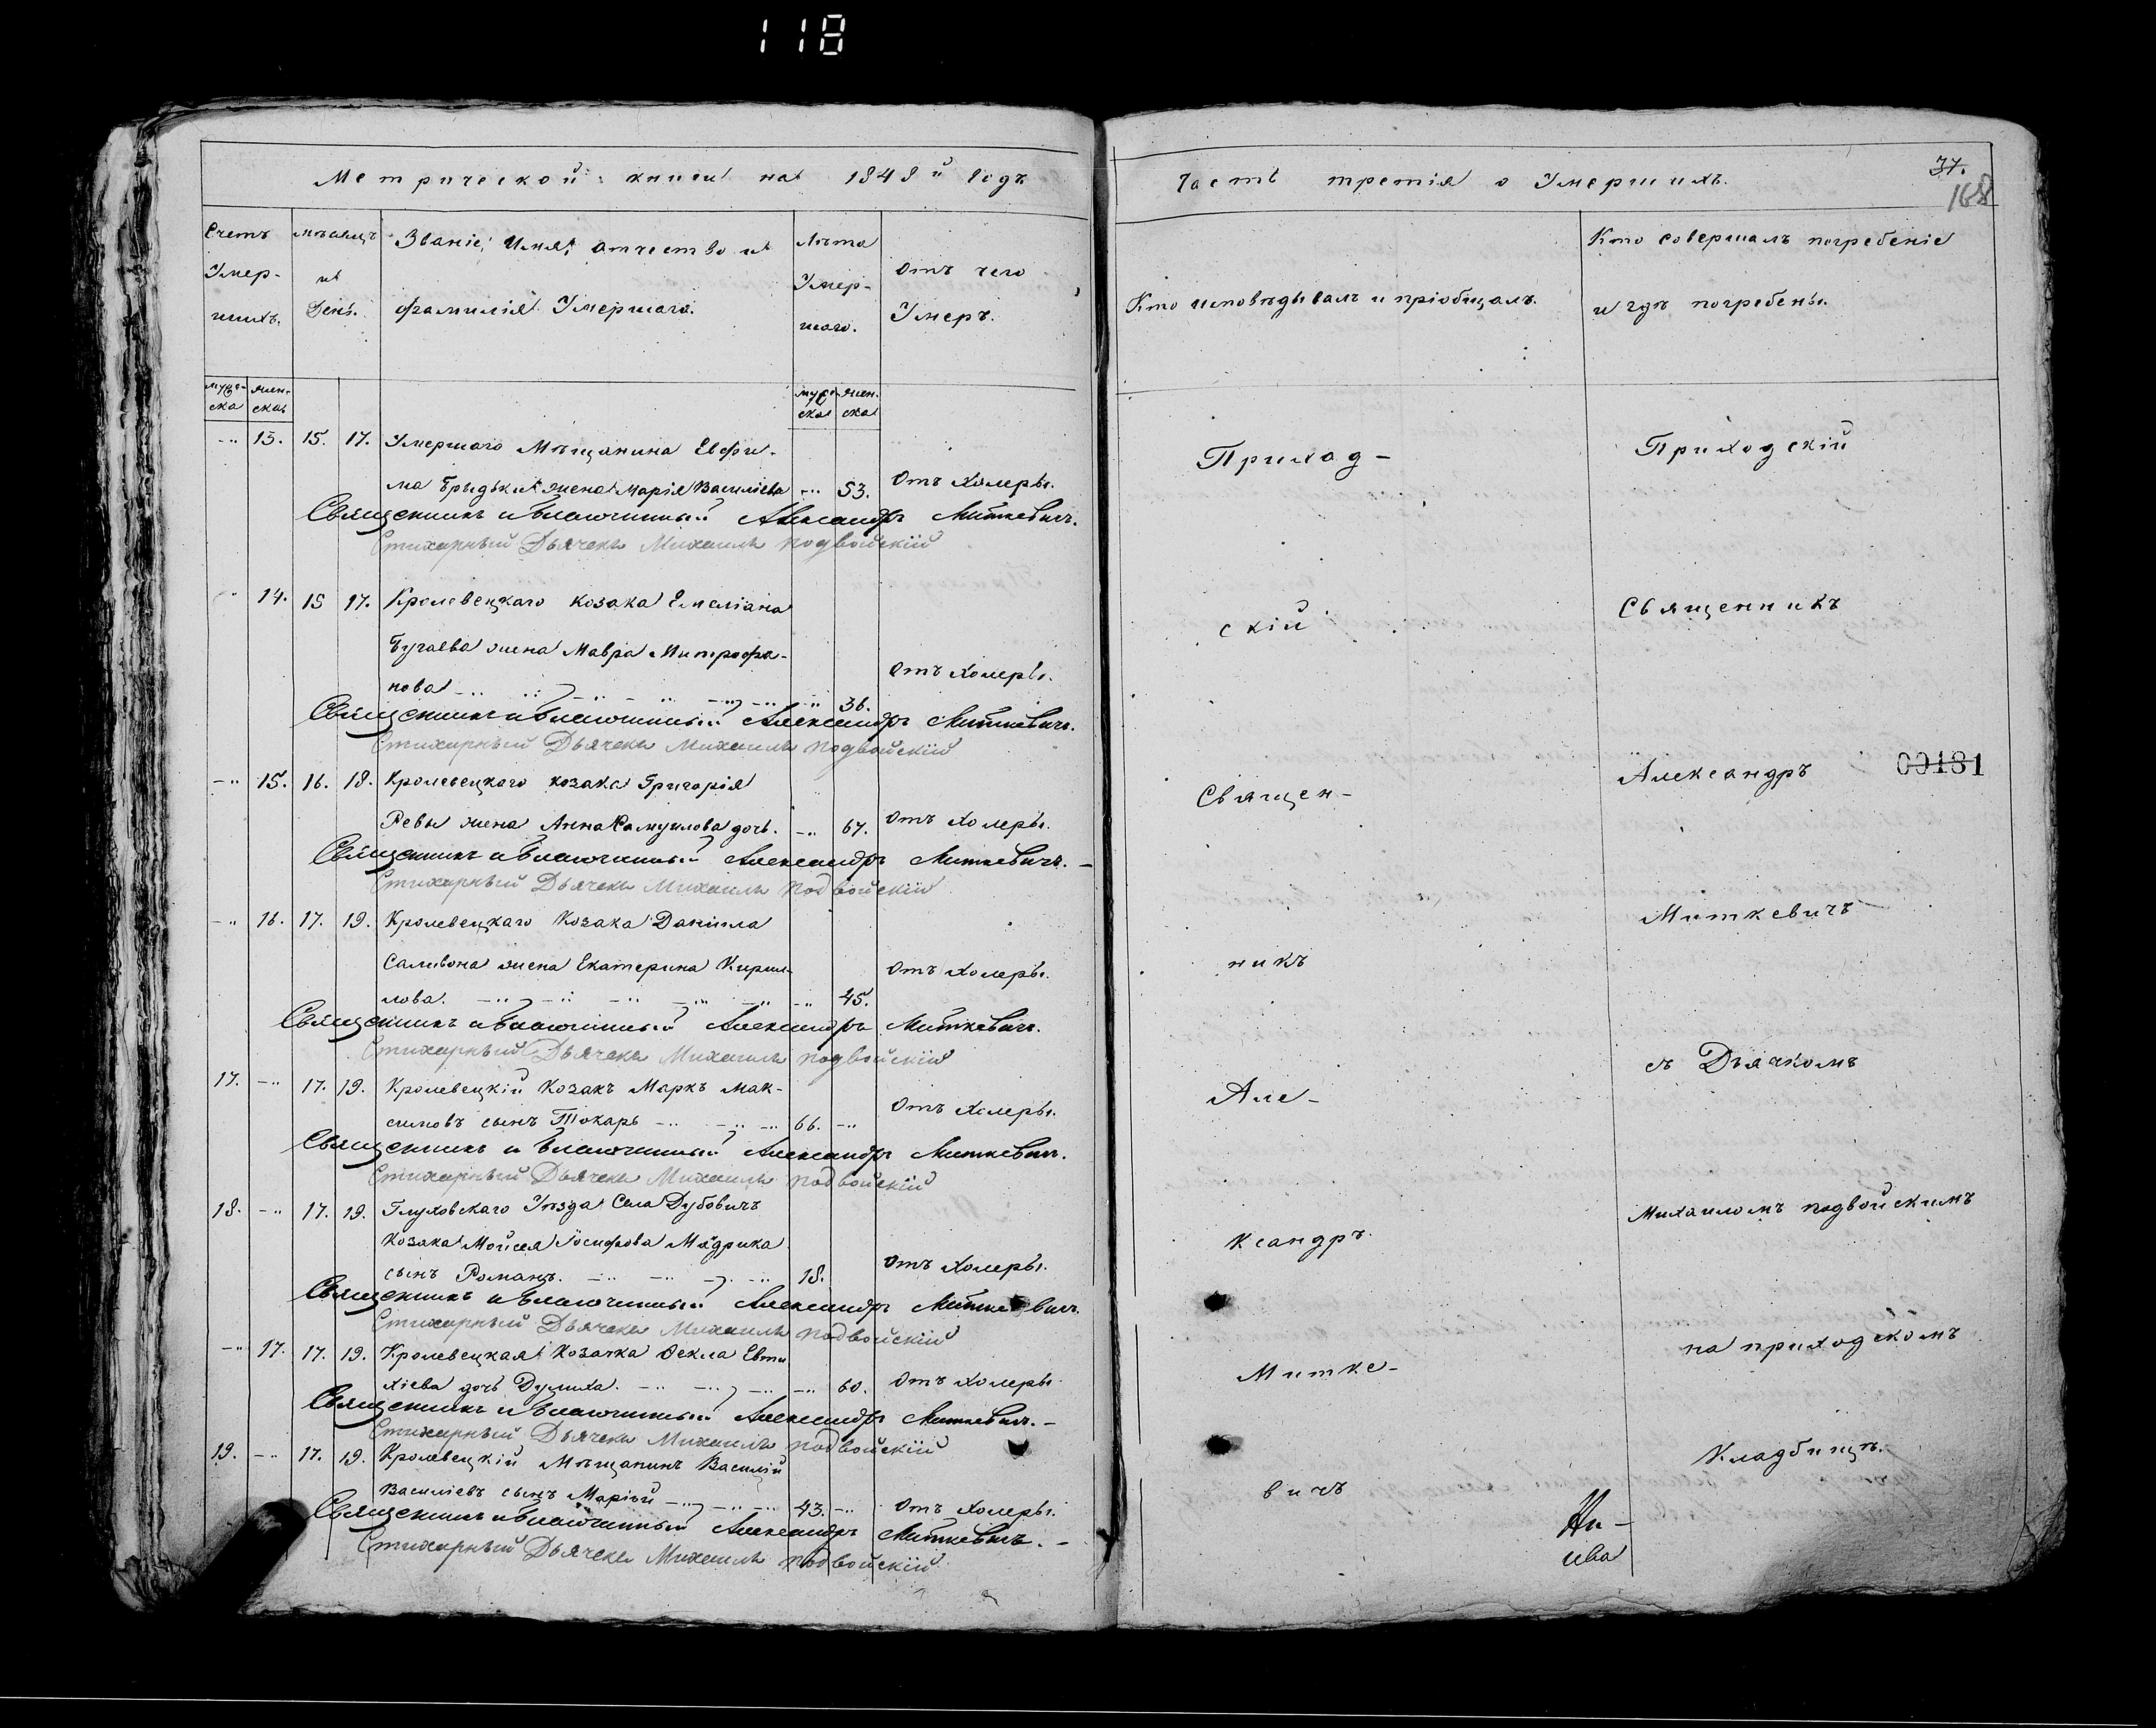 118
Метрической книги на 1848й годъ
Счетъ Умер- шихъ.
мѣсяцъ и День.
Званіе, Имя, отчество и фамилія Умершаго.
Лѣта Умер- шаго.
Отъ чего Умеръ.
муже- ска
жен- ска
муже- ска
жен- ска
-" 13. 15. 17. Умершаго Мѣщанина Евфи-
ма Грыдьки жена Марія Василіева -" 53. Отъ Холеры.
Священникъ и Благочинный Александръ Миткевичъ.
Стихарный Дьячекъ Михаилъ Подвойскій
-" 14. 15 17. Кролевецкаго козака Емеліана
Бугаева жена Мавра Митрофа-
нова -" 36. Отъ Холеры.
Священникъ и Благочинный Александръ Миткевичъ.
Стихарный Дьячекъ Михаилъ Подвойскій
-" 15. 16. 18. Кролевецкаго козака Григорія
Ревы жена Анна Самуилова дочь. -" 67. Отъ Холеры.
Священникъ и Благочинный Александръ Миткевичъ. -
Стихарный Дьячекъ Михаилъ Подвойскій
-" 16. 17. 19. Кролевецкаго Козака Даніила
Саливона жена Екатерина Кирил-
лова. -" 45. Отъ Холеры.
Священникъ и Благочинный Александръ Миткевичъ.
Стихарный Дьячекъ Михаилъ Подвойскій
17. -" 17. 19. Кролевецкій Козакъ Маркъ Мак-
симовъ сынъ Токарь -" 66. -" Отъ Холеры.
Священникъ и Благочинный Александръ Миткевичъ.
Стихарный Дьячекъ Михаилъ Подвойскій
18. -" 17. 19. Глуховскаго Уѣзда Села Дубовичъ
Козака Мойсея Іосифова Мадрика
сынъ Романъ. -" 18. Отъ Холеры.
Священникъ и Благочинный Александръ Миткевичъ.
Стихарный Дьячекъ Михаилъ Подвойскій
-" 17. 17. 19. Кролевецкая Козачка Фекла Евти
хіева дочь -" 60. Отъ Холеры
Священникъ и Благочинный Александръ Миткевичъ. -
Стихарный Дьячекъ Михаилъ Подвойскій
19. -" 17. 19. Кролевецкій Мѣщанинъ Василій
Василіевъ сынъ -" 43. -" Отъ Холеры.
Священникъ и Благочинный Александръ Миткевичъ. -
Стихарный Дьячекъ Михаилъ Подвойскій
Часть третія о Умершихъ.
37.
168
Кто исповѣдывалъ и пріобщалъ.
Кто совершалъ погребеніе
и гдѣ погребены.
Приход-
скій
Священ-
никъ
Але-
ксандръ
Митке-
вичъ
Приходскій
Священникъ
Александръ
00181
Миткевичъ
съ Дьячкомъ
Михаиломъ Подвойскимъ
на приходскомъ
Кладбищѣ.